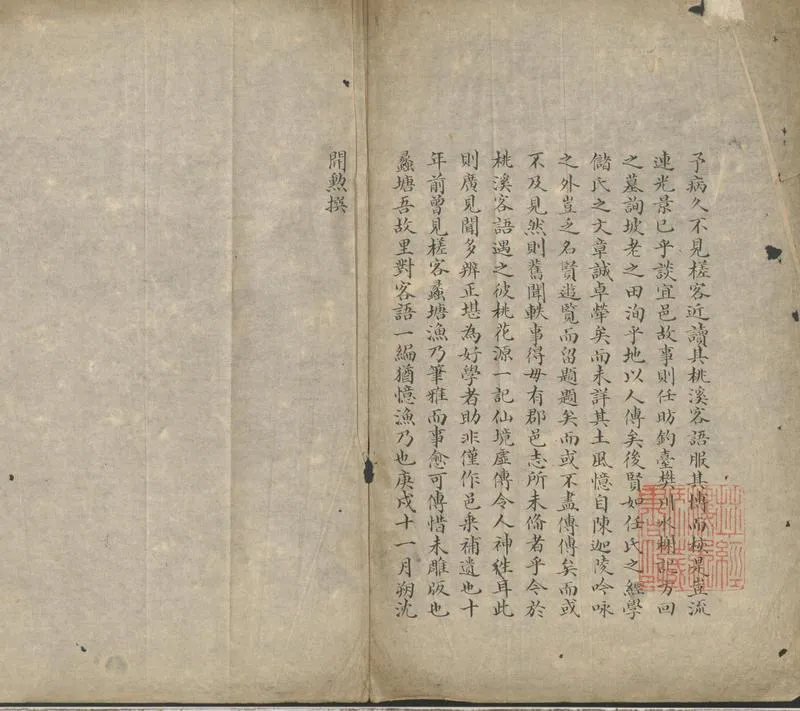 予病久不見槎客近讀其桃溪客語服其博而核是豈流
連光景已乎談宜邑故事則任昉釣臺樊川水榭訪方回
之墓詢坡老之田洵乎地以人傳矣後賢如任氏之經學
儲氏之文章誠卓犖矣而未詳其土風憶自陳迦陵吟咏
之外豈乏名賢遊覽而留題題矣而或不盡傳傳矣而或
不及見然則舊聞軼事得毋有郡邑志所未俻者乎今於
桃溪客語遇之彼桃花源一記仙境虛傳令人神徃耳此
則廣見聞多辨正堪為好學者助非僅作邑乘補遺也十
年前曾見槎客蠡塘漁乃筆雅而事愈可傳惜未雕版也
蠡塘吾故里對客語一編猶憶漁乃也庚戌十一月朔沈
開勲撰